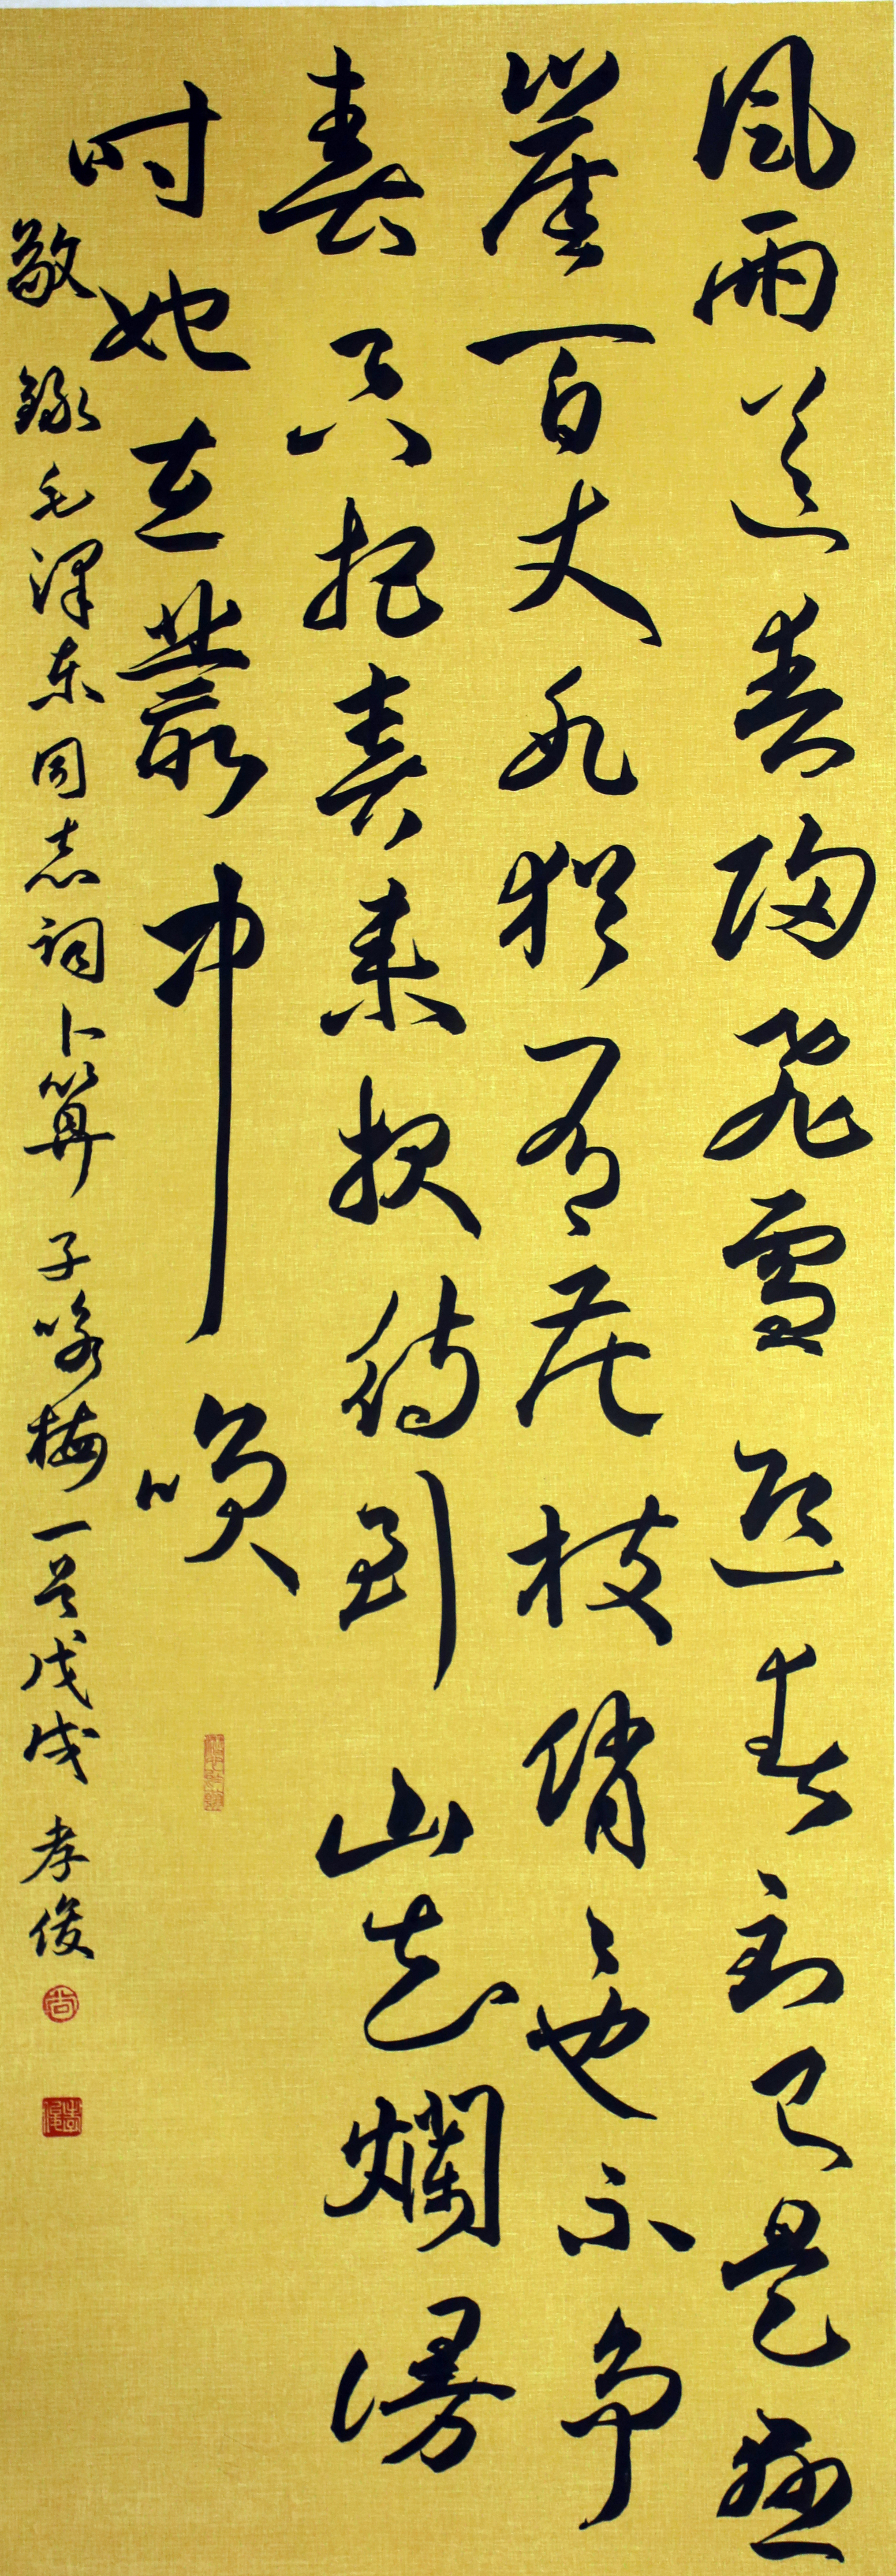 風雨送春歸飛雪迎春到已是懸
崖百丈冰猶有花枝俏々也不爭
春只把春來報待到山花爛漫
时她在叢中咲
敬錄毛澤东同志詞卜算子咏梅一首戊戌孝俊
尚